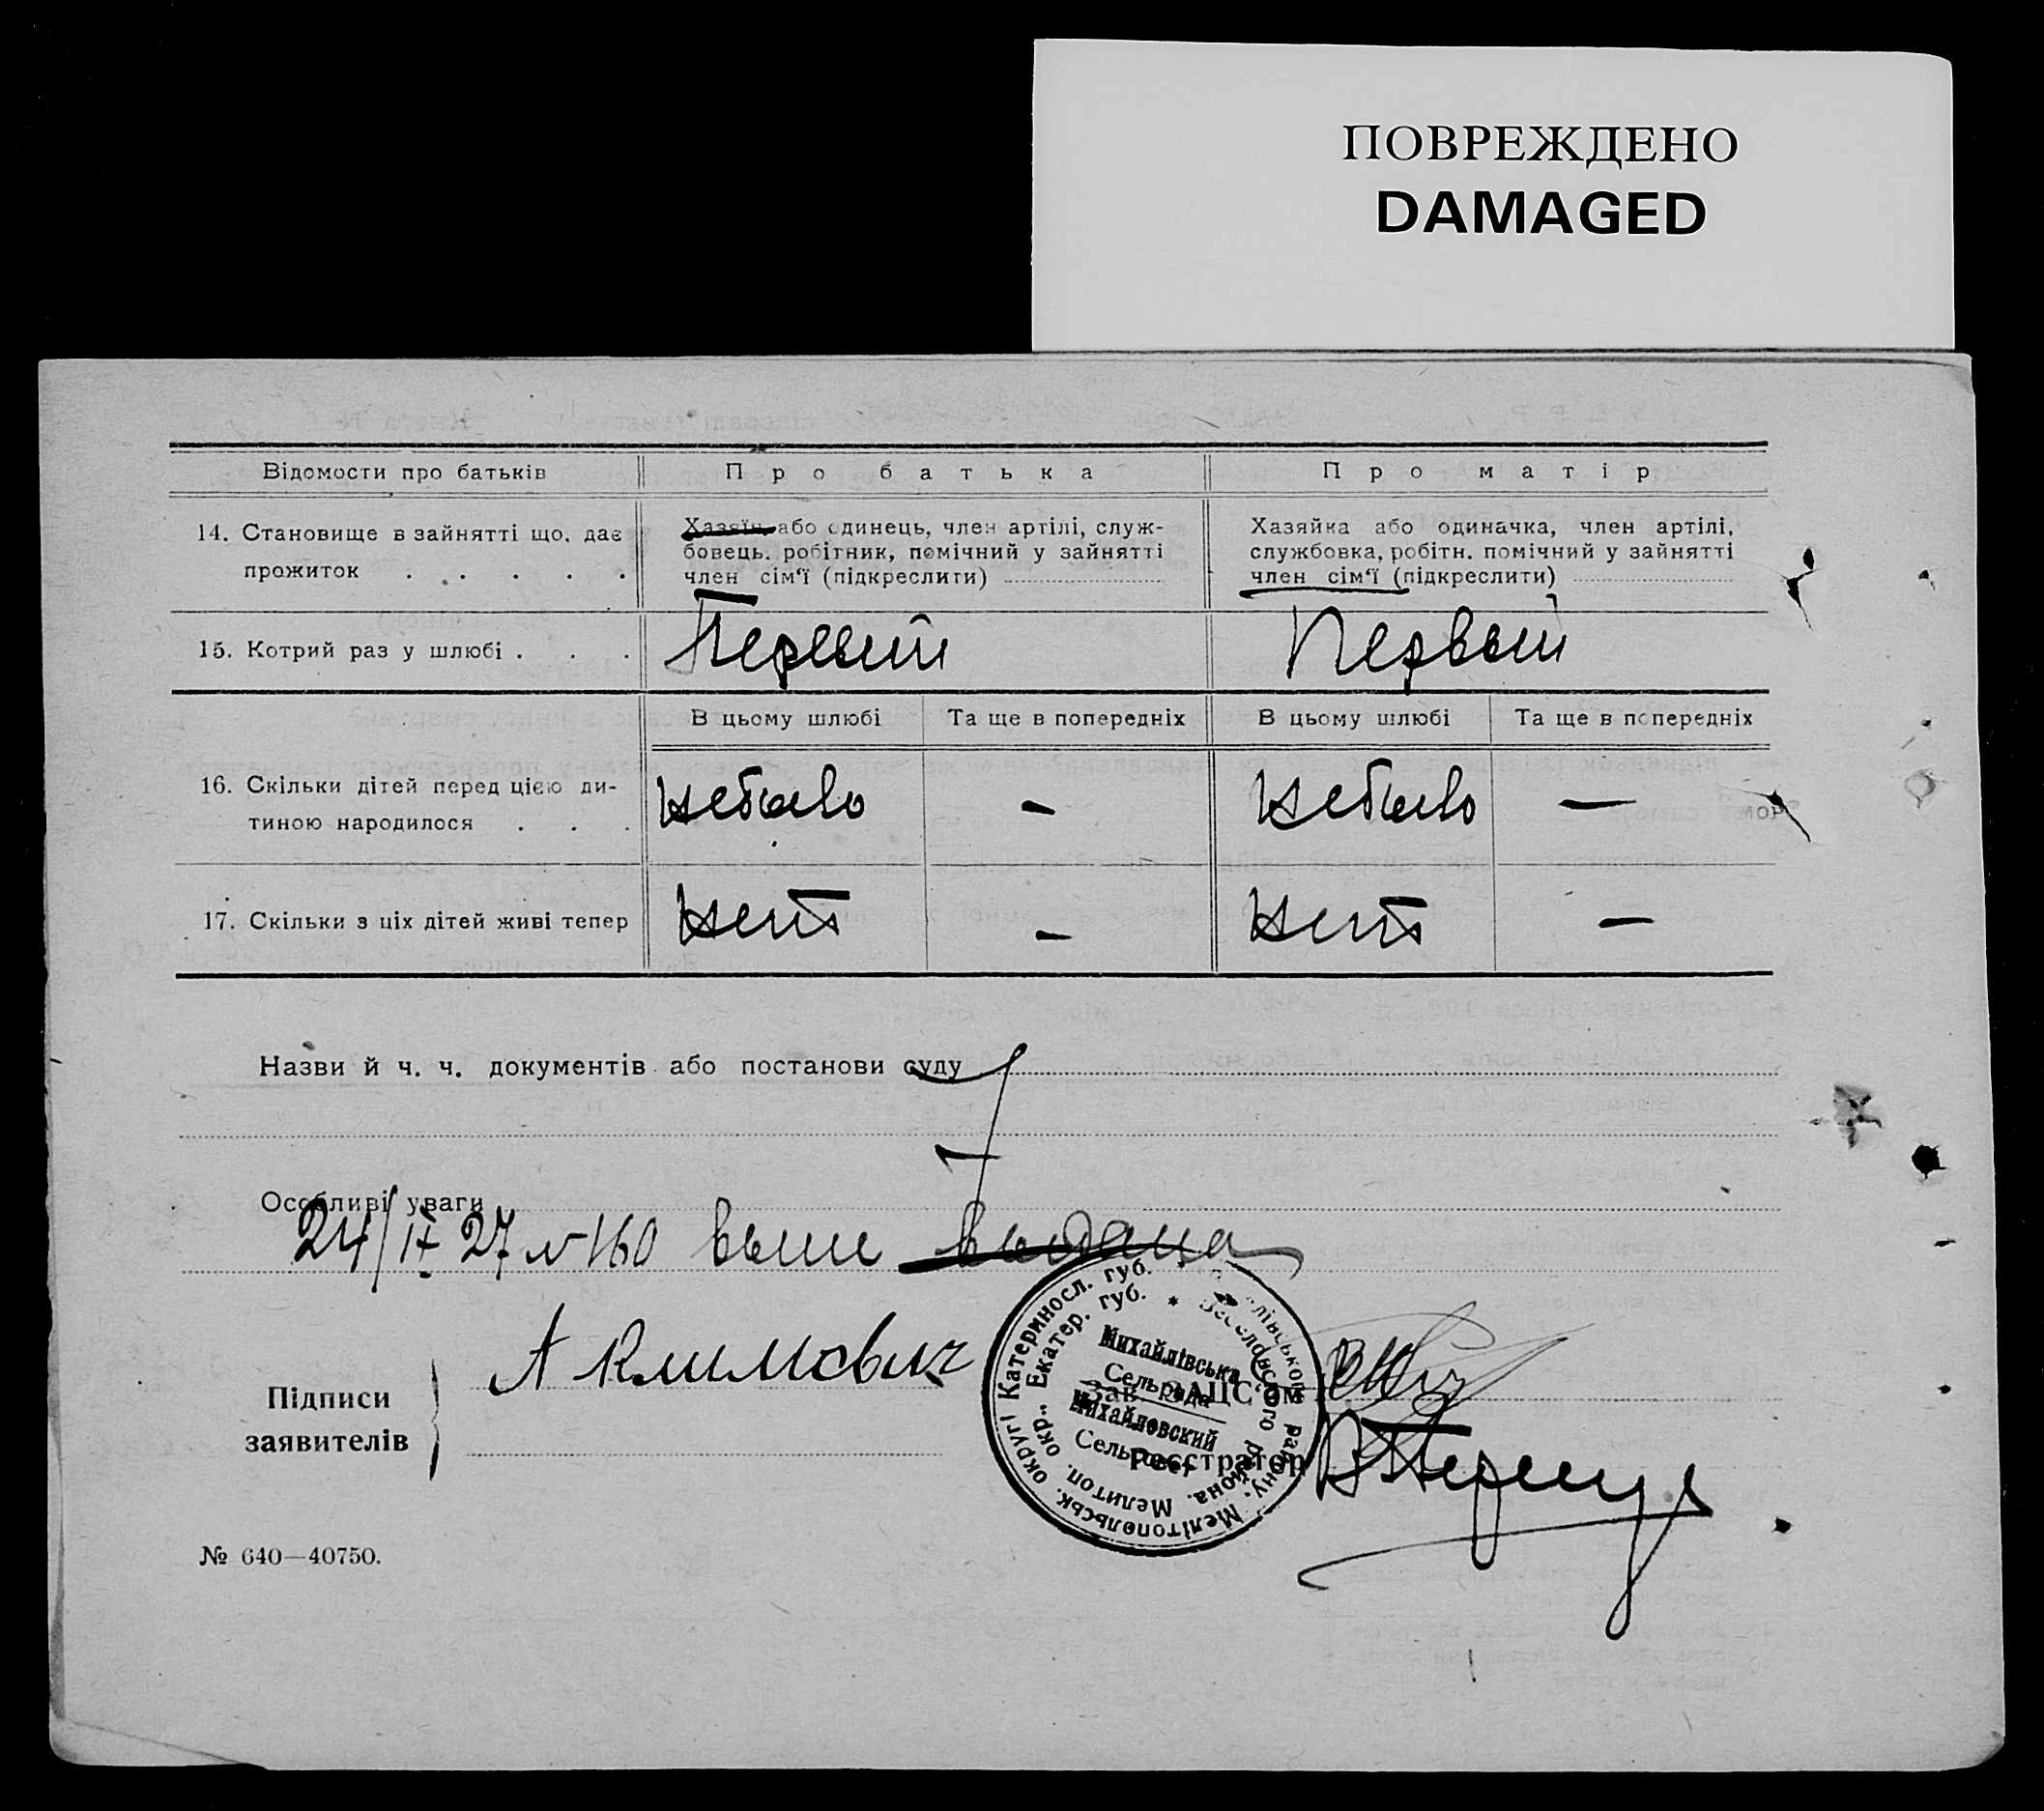 ПОВРЕЖДЕНО
DAMAGED
Відомости про батьків
Про батька
Про матір
14. Становище в зайнятті що, дає
прожиток . . . . .
Хазяїн, або одинець, член артілі, служ-
бовець. робітник, помічний у зайнятті
член сім'ї (підкреслити)
Хазяйка або одиначка, член артілі,
службовка, робітн. помічний у зайнятті
член сім'ї (підкреслити)
15. Котрий раз у шлюбі . . .
Первый
Первый
В цьому шлюбі
Та ще в попередніх
В цьому шлюбі
Та ще в попередніх
16. Скільки дітей перед цією ди-
тиною народилося . . .
небыло
–
небыло
–
17. Скільки з ціх дітей живі тепер
нет
–
нет
–
Назви й ч. ч. документів або постанови суду
Особливі уваги
24/IX 27 № 160 выпи выдана
Підписи
заявителів
А Климович
Зав. ЗАЦС'ом
Реєстратор
Катериносл. губ.
Екатер. губ.
Мелітопельськ. округі
Мелитоп. окр.
району.
района.
Михайлівська
Сельрада
Михайловский
Сельсовет
№ 640—40750.